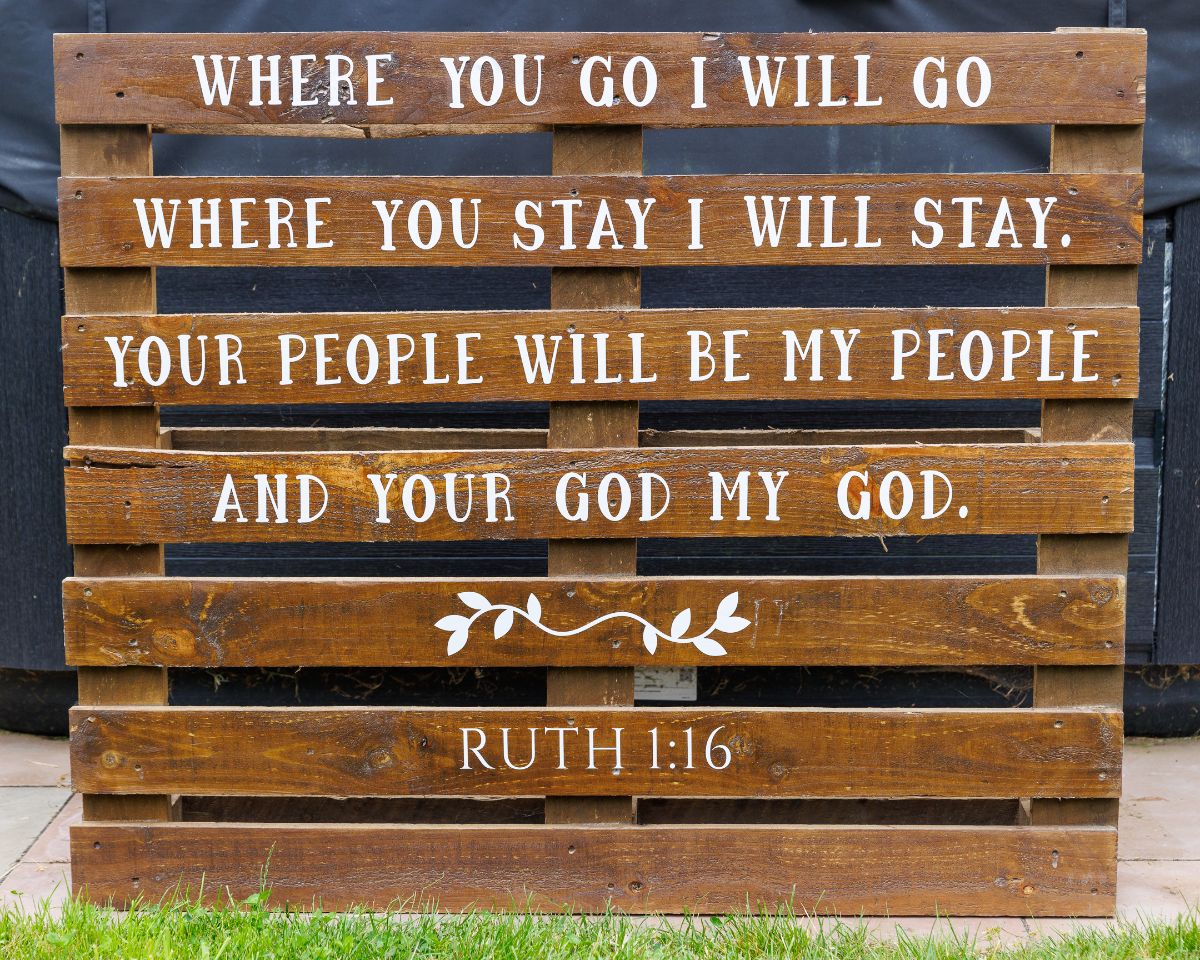 WHERE YOU GO I WILL GO
WHERE YOU STAY I WILL STAY.
YOUR PEOPLE WILL BE MY PEOPLE
AND YOUR GOD MY GOD.
RUTH 1:16